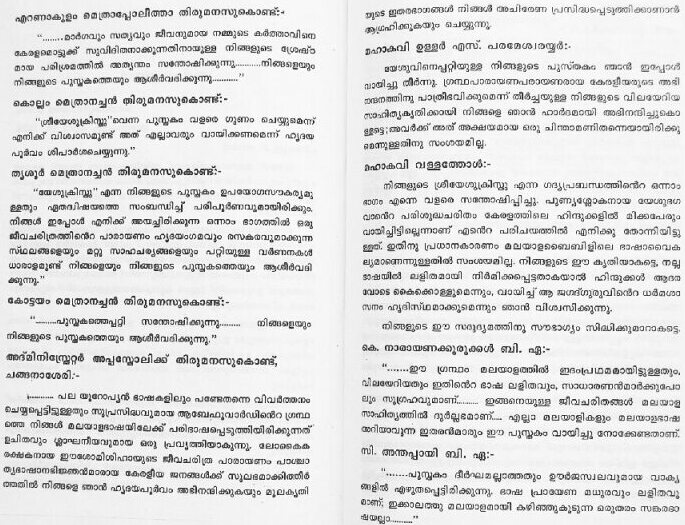 എറണാകുളം മെത്രാപ്പോലീത്താ തിരുമനസുകൊണ്ട്:-
“........മാർഗവും സത്യവും ജീവനുമായ നമ്മുടെ കർത്താവിനെ
കേരളമൊട്ടുക്ക് സുവിദിതനാക്കുന്നതിനായുള്ള നിങ്ങളുടെ ശ്രേഷ്ഠ
മായ പരിശ്രമത്തിൽ അത്യന്തം സന്തോഷിക്കുന്നു...........നിങ്ങളെയും
നിങ്ങളുടെ പുസ്തകത്തെയും ആശീർവദിക്കുന്നു...........”
കൊല്ലം മെത്രാനച്ചൻ തിരുമനസുകൊണ്ട്:-
“ശ്രീയേശുക്രിസ്തു”വെന്ന പുസ്തകം വളരെ ഗുണം ചെയ്യുമെന്ന്
എനിക്ക് വിശ്വാസമുണ്ട് അത് എല്ലാവരും വായിക്കണമെന്ന് ഹൃദയ
പൂർവം ശിപാർശചെയ്യുന്നു.”
തൃശൂർ മെത്രാനച്ചൻ തിരുമനസുകൊണ്ട്:-
“യേശുക്രിസ്തു” എന്ന നിങ്ങളുടെ പുസ്തകം ഉപയോഗസൗകര്യമു
ള്ളതും ഏതദ്വിഷയത്തെ സംബന്ധിച്ച് പരിപൂർണവുമായിരിക്കും.
നിങ്ങൾ ഇപ്പോൾ എനിക്ക് അയച്ചിരിക്കുന്ന ഒന്നാം ഭാഗത്തിൽ ഒരു
ജീവചരിത്രത്തിന്റെ പാരായണം ഹൃദയംഗമവും രസകരവുമാക്കുന്ന
സ്ഥലങ്ങളെയും മറ്റു സാഹചര്യങ്ങളെയും പറ്റിയുള്ള വർണനകൾ
ധാരാളമുണ്ട് നിങ്ങളെയും നിങ്ങളുടെ പുസ്തകത്തെയും ആശീർവദി
ക്കുന്നു.”
കോട്ടയം മെത്രാനച്ചൻ തിരുമനസുകൊണ്ട്:-
“.........പുസ്തകത്തെപ്പറ്റി സന്തോഷിക്കുന്നു......... നിങ്ങളെയും
നിങ്ങളുടെ പുസ്തകത്തെയും ആശീർവദിക്കുന്നു.”
അദ്മിനിസ്ത്രേറ്റർ അപ്പസ്തോലിക്ക് തിരുമനസുകൊണ്ട്,
ചങ്ങനാശേരി:-
.......... പല യൂറോപ്യൻ ഭാഷകളിലും പണ്ടേതന്നെ വിവർത്തനം
ചെയ്യപ്പെട്ടിട്ടുള്ളതും സുപ്രസിദ്ധവുമായ ആബേഫുവാർഡിന്റെ ഗ്രന്ഥ
ത്തെ നിങ്ങൾ മലയാളഭാഷയിലേക്ക് പരിഭാഷപ്പെടുത്തിയിരിക്കുന്നത്
ഉചിതവും ശ്ലാഘനീയവുമായ ഒരു പ്രവൃത്തിയാകുന്നു. ലോകൈക
രക്ഷകനായ ഈശോമിശിഹായുടെ ജീവചരിത്ര പാരായണം പാശ്ചാ
ത്യഭാഷാനഭിജ്ഞൻമാരായ കേരളീയ ജനങ്ങൾക്ക് സൂലഭമാക്കിത്തീർ
ത്തതിൽ നിങ്ങളെ ഞാൻ ഹൃദയപൂർവം അഭിനന്ദിക്കുകയും മൂലകൃതി
യുടെ ഇതരഭാഗങ്ങൾ നിങ്ങൾ അചിരേണ പ്രസിദ്ധപ്പെടുത്തിക്കാണാൻ
ആഗ്രഹിക്കുകയും ചെയ്യുന്നു.
മഹാകവി ഉള്ളൂർ എസ്. പരമേശ്വരയ്യർ:-
യേശുവിനെപ്പറ്റിയുള്ള നിങ്ങളുടെ പുസ്തകം ഞാൻ ഇപ്പോൾ
വായിച്ചു തീർന്നു. ഗ്രന്ഥപാരായണപരായണരായ കേരളീയരുടെ അഭി
നന്ദനത്തിനു പാത്രീഭവിക്കുമെന്ന് തീർച്ചയുള്ള നിങ്ങളുടെ വിലയേറിയ
സാഹിത്യകൃതിക്കായി നിങ്ങളെ ഞാൻ ഹാർദമായി അഭിനന്ദിച്ചുകൊ
ള്ളട്ടെ; അവർക്ക് അത് അക്ഷയമായ ഒരു ചിന്താമണിതന്നെയായിരിക്കു
മെന്നുള്ളതിനു സംശയമില്ല.
മഹാകവി വള്ളത്തോൾ:-
നിങ്ങളുടെ ശ്രീയേശുക്രിസ്തു എന്ന ഗദ്യപ്രബന്ധത്തിന്റെ ഒന്നാം
ഭാഗം എന്നെ വളരെ സന്തോഷിപ്പിച്ചു. പുണ്യശ്ലോകനായ യേശുഭഗ
വാന്റെ പരിശുദ്ധചരിതം കേരളത്തിലെ ഹിന്ദുക്കളിൽ മിക്കപേരും
വായിച്ചിട്ടില്ലെന്നാണ് എന്റെ പരിചയത്തിൽ എനിക്കു തോന്നിയിട്ടു
ള്ളത്. ഇതിനു പ്രധാനകാരണം മലയാളബൈബിളിലെ ഭാഷാവൈക
ല്യമാണെന്നുള്ളതിൽ സംശയമില്ല. നിങ്ങളുടെ ഈ കൃതിയാകട്ടെ, നല്ല
ഭാഷയിൽ ലളിതമായി നിർമിക്കപ്പെട്ടതാകയാൽ ഹിന്ദുക്കൾ ആദര
വോടെ കൈക്കൊള്ളുമെന്നും, വായിച്ച് ആ ജഗദ്ഗുരുവിന്റെ ധർമശാ
സനം ഹൃദിസ്ഥമാക്കുമെന്നും ഞാൻ വിശ്വസിക്കുന്നു.
നിങ്ങളുടെ ഈ സദുദ്യമത്തിനു സൗഭാഗ്യം സിദ്ധിക്കുമാറാകട്ടെ.
കെ. നാരായണക്കുരുക്കൾ ബി. ഏ:-
“.......ഈ ഗ്രന്ഥം മലയാളത്തിൽ ഇദംപ്രഥമമായിട്ടുള്ളതും,
വിലയേറിയതും ഇതിന്റെ ഭാഷ ലളിതവും, സാധാരണൻമാർക്കുപോ
ലും സുഗ്രഹവുമാണ്....... ഇങ്ങനെയുള്ള ജീവചരിത്രങ്ങൾ മലയാള
സാഹിത്യത്തിൽ ദുർല്ലഭമാണ്.... എല്ലാ മലയാളികളും മലയാളഭാഷ
അറിയാവുന്ന ഇതരൻമാരും ഈ പുസ്തകം വായിച്ചു നോക്കേണ്ടതാണ്.
സി. അന്തപ്പായി ബി. ഏ:-
“.......പുസ്തകം ദീർഘമല്ലാത്തതും ഊർജസ്വലവുമായ വാക്യ
ങ്ങളിൽ എഴുതപ്പെട്ടിരിക്കുന്നു. ഭാഷ പ്രായേണ മധുരവും ലളിതവു
മാണ്; ഇക്കാലത്തു മലയാളമായി കഴിഞ്ഞുകൂടുന്ന ഒരുതരം സങ്കരഭാ
ഷയല്ലാ..........”